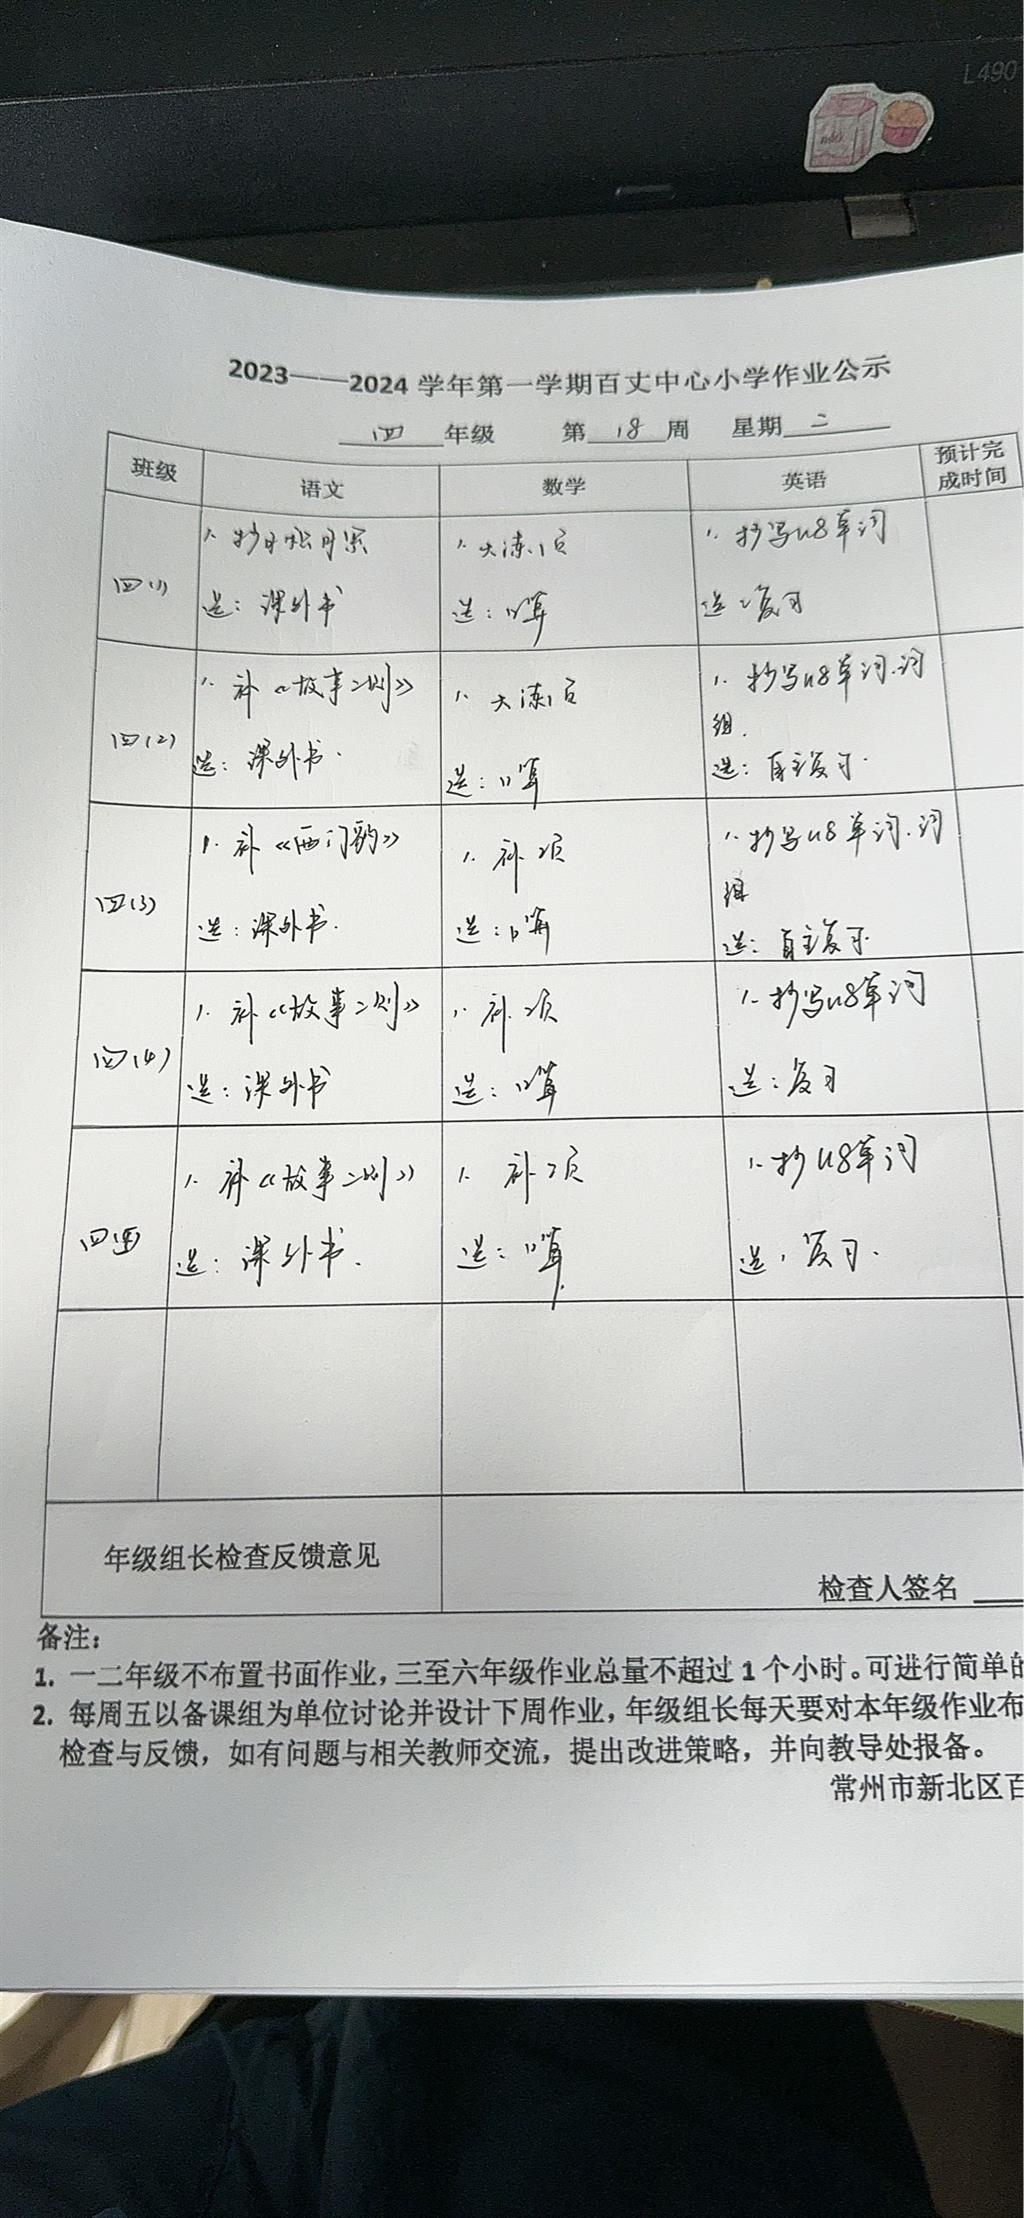 L490
milk
2023——2024 学年第一学期百丈中心小学作业公示
四 年级 第 18 周 星期 二
班级 语文 数学 英语 预计完成时间
四(1)
1. 抄日积月累
选: 课外书
1. 大练1页
选: 口算
1. 抄写u8单词
选: 复习
四(2)
1. 补《故事二则》
选: 课外书.
1. 大练1页
选: 口算
1. 抄写u8单词.词
组.
选: 自主复习.
四(3)
1. 补《西门豹》
选: 课外书.
1. 补 2页
选: 口算
1. 抄写u8单词.词
组
选: 自主复习.
四(4)
1. 补《故事二则》
选: 课外书
1. 补 2页
选: 口算
1. 抄写u8单词
选: 复习
四五
1. 补《故事二则》
选: 课外书.
1. 补 2页
选: 口算
1. 抄U8单词
选: 复习.
年级组长检查反馈意见
检查人签名
备注:
1. 一二年级不布置书面作业,三至六年级作业总量不超过 1 个小时。可进行简单的
2. 每周五以备课组为单位讨论并设计下周作业,年级组长每天要对本年级作业布
检查与反馈,如有问题与相关教师交流,提出改进策略,并向教导处报备。
常州市新北区百